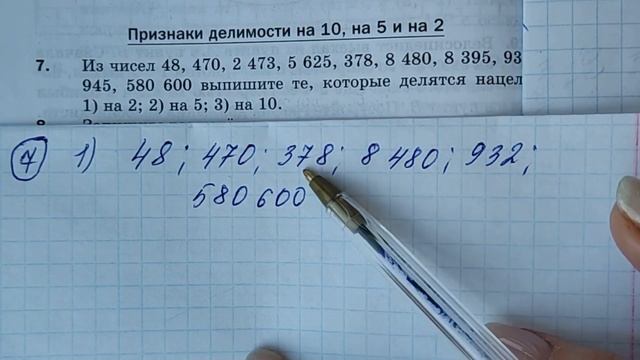 Признаки делимости на 10, на 5 и на 2
7. Из чисел 48, 470, 2 473, 5 625, 378, 8 480, 8 395, 93
945, 580 600 выпишите те, которые делятся нацел
1) на 2; 2) на 5; 3) на 10.
7 1) 48; 470; 378; 8 480; 932;
580 600